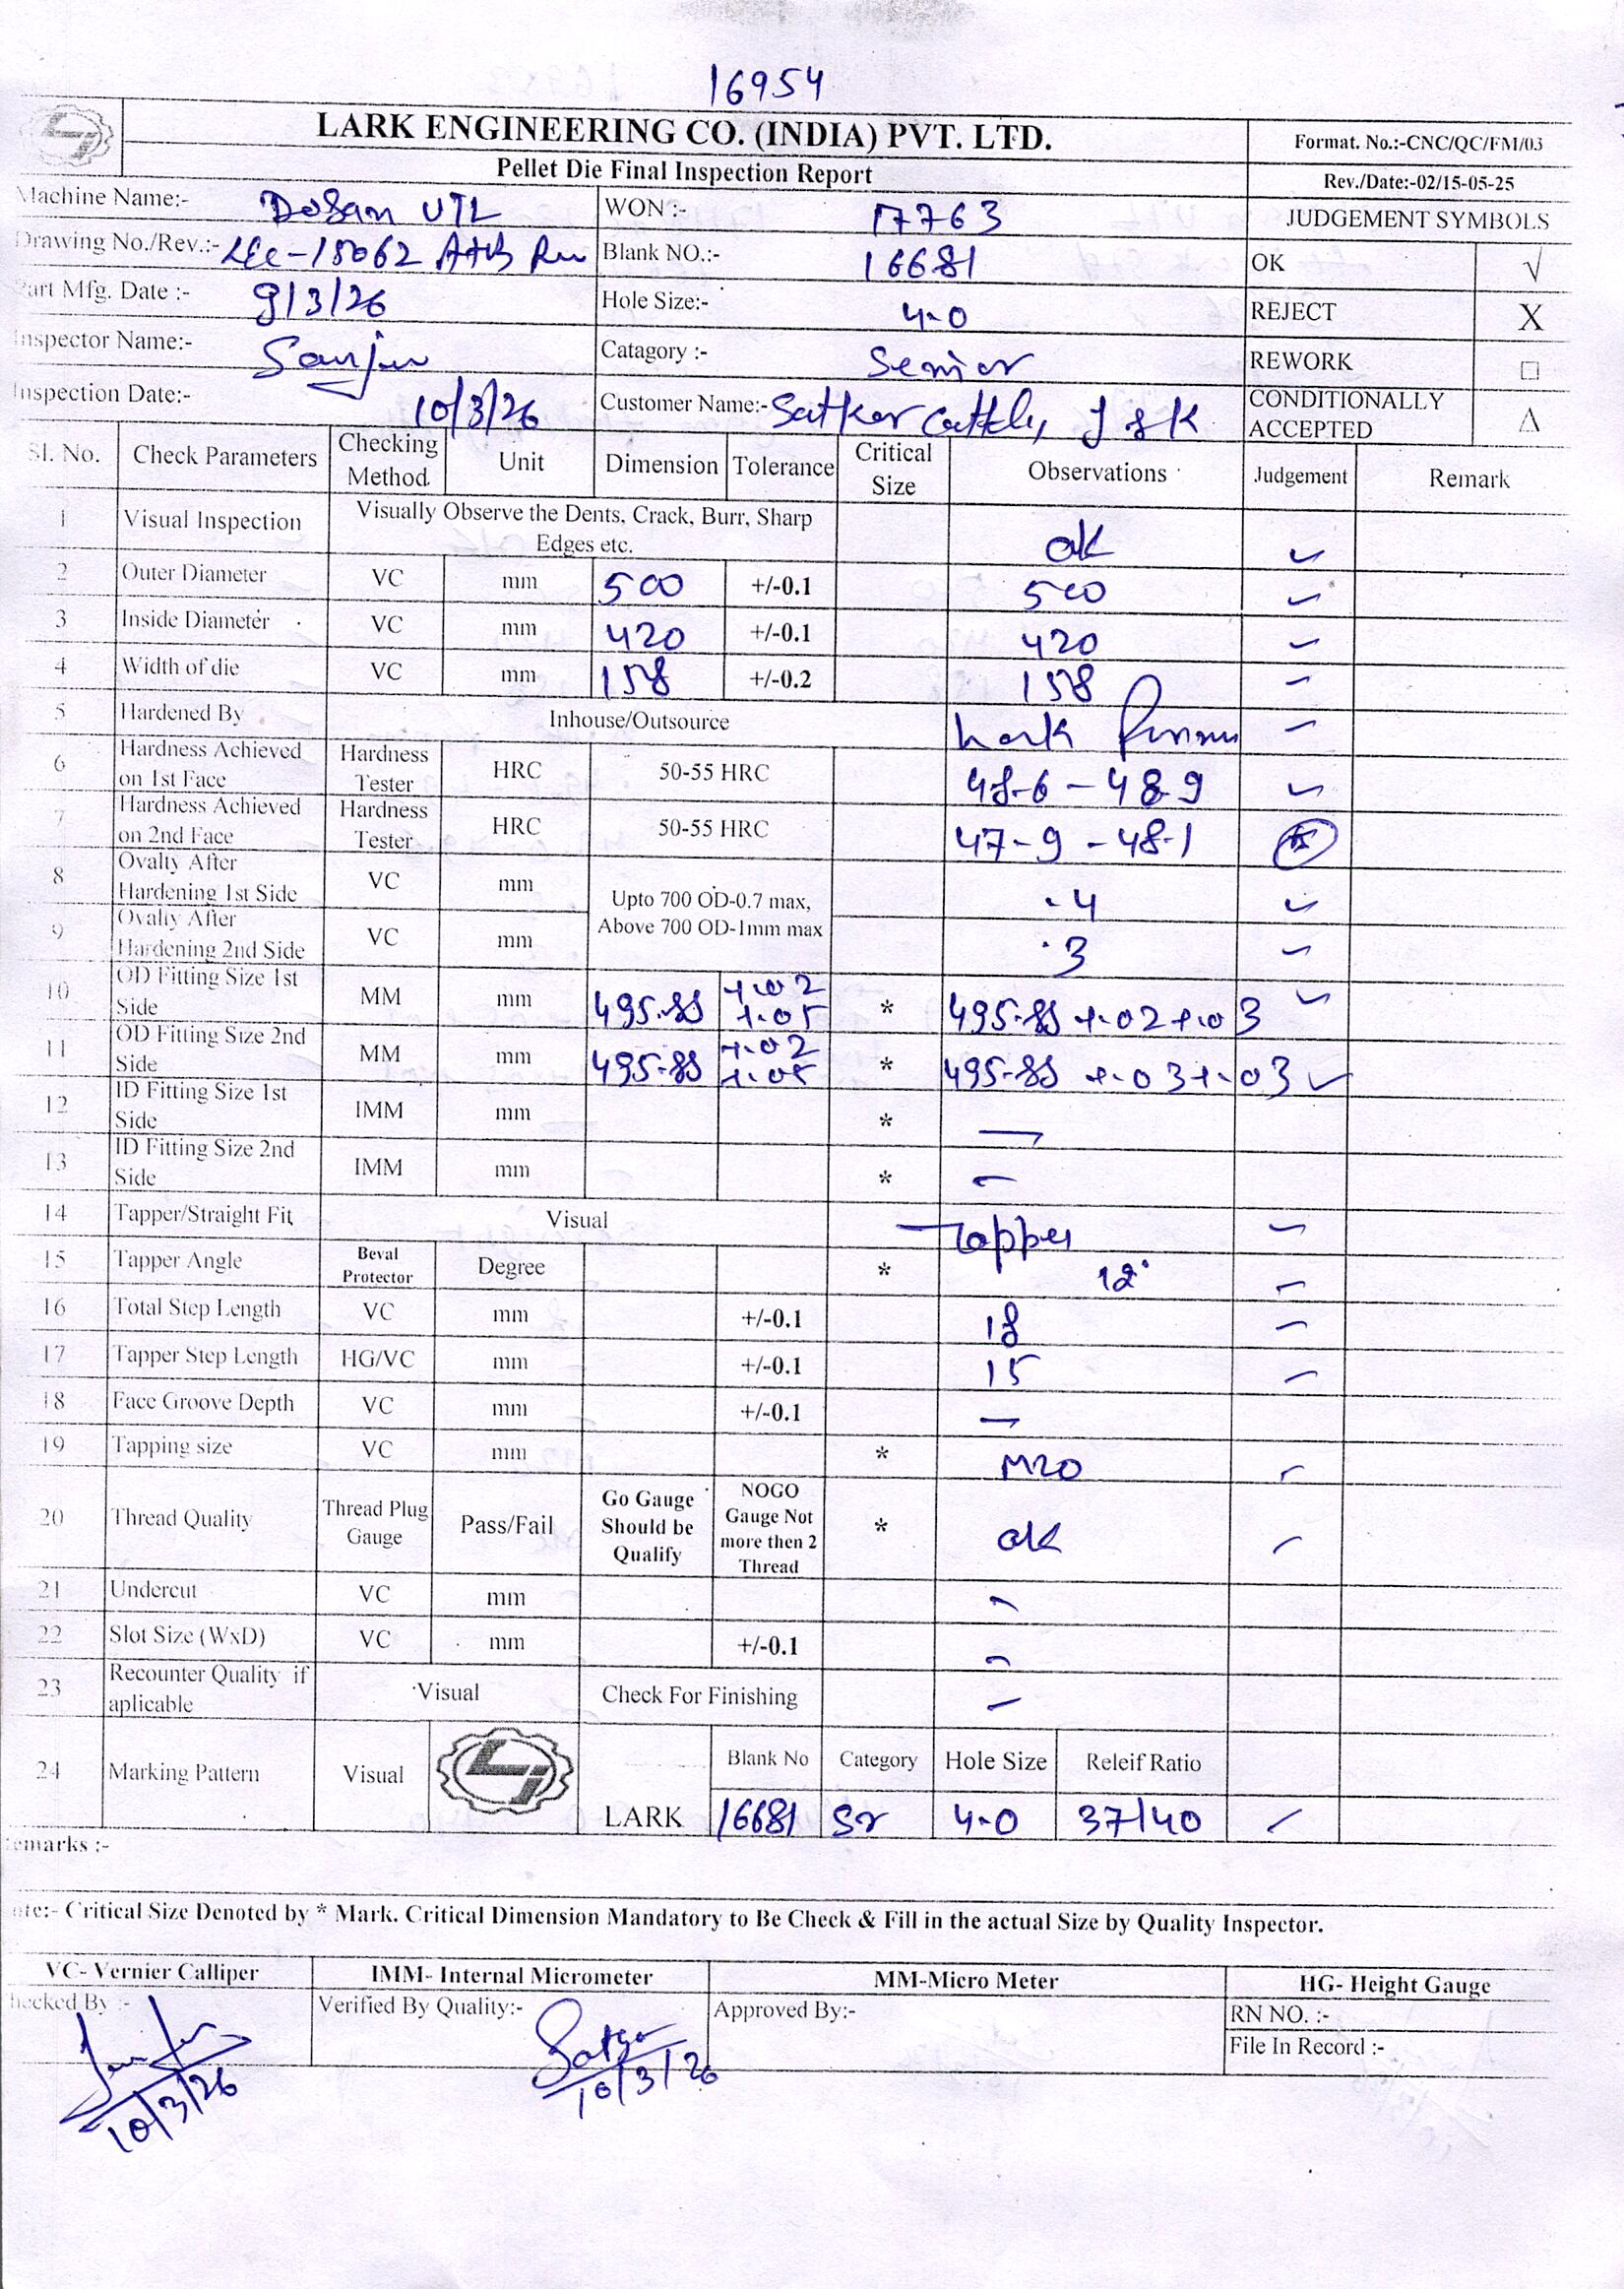 16954
LARK ENGINEERING CO. (INDIA) PVT. LTD.
Pellet Die Final Inspection Report
Format. No.:-CNC/QC/FM/03
Rev./Date:-02/15-05-25
Machine Name:- Dosan VTL WON :- 17763 JUDGEMENT SYMBOLS
Drawing No./Rev.:- LEC-18062 Blank NO.:- 16681 OK √
Part Mfg. Date :- 9/3/26 Hole Size:- 4.0 REJECT X
Inspector Name:- Sanju Catagory :- Senior REWORK □
Inspection Date:- 10/3/26 Customer Name:- Satkar Cattle, J & K CONDITIONALLY ACCEPTED Δ
Sl. No. Check Parameters Checking Method Unit Dimension Tolerance Critical Size Observations Judgement Remark
1 Visual Inspection Visually Observe the Dents, Crack, Burr, Sharp Edges etc. ok ✓
2 Outer Diameter VC mm 500 +/-0.1 500 ✓
3 Inside Diameter VC mm 420 +/-0.1 420 ✓
4 Width of die VC mm 158 +/-0.2 158 ✓
5 Hardened By Inhouse/Outsource Lark ✓
6 Hardness Achieved on 1st Face Hardness Tester HRC 50-55 HRC 48.6 - 48.9 ✓
7 Hardness Achieved on 2nd Face Hardness Tester HRC 50-55 HRC 47.9 - 48.1
8 Ovalty After Hardening 1st Side VC mm Upto 700 OD-0.7 max, Above 700 OD-1mm max .4 ✓
9 Ovalty After Hardening 2nd Side VC mm .3 ✓
10 OD Fitting Size 1st Side MM mm 495.88 +.02 +.05 * 495.88 +.02 +.03 ✓
11 OD Fitting Size 2nd Side MM mm 495.88 +.02 +.05 * 495.88 +.03 +.03 ✓
12 ID Fitting Size 1st Side IMM mm * —
13 ID Fitting Size 2nd Side IMM mm * —
14 Tapper/Straight Fit Visual Tapper ✓
15 Tapper Angle Beval Protector Degree * 12° ✓
16 Total Step Length VC mm +/-0.1 18 ✓
17 Tapper Step Length HG/VC mm +/-0.1 15 ✓
18 Face Groove Depth VC mm +/-0.1 —
19 Tapping size VC mm * M20 ✓
20 Thread Quality Thread Plug Gauge Pass/Fail Go Gauge Should be Qualify NOGO Gauge Not more then 2 Thread * ok ✓
21 Undercut VC mm —
22 Slot Size (WxD) VC mm +/-0.1 —
23 Recounter Quality if aplicable Visual Check For Finishing —
24 Marking Pattern Visual LARK Blank No Category Hole Size Releif Ratio
16681 Sr 4.0 37/40 ✓
emarks :-
ote:- Critical Size Denoted by * Mark. Critical Dimension Mandatory to Be Check & Fill in the actual Size by Quality Inspector.
VC- Vernier Calliper IMM- Internal Micrometer MM-Micro Meter HG- Height Gauge
hecked By :- Verified By Quality:- Approved By:- RN NO. :-
File In Record :-
10/3/26 10/3/26